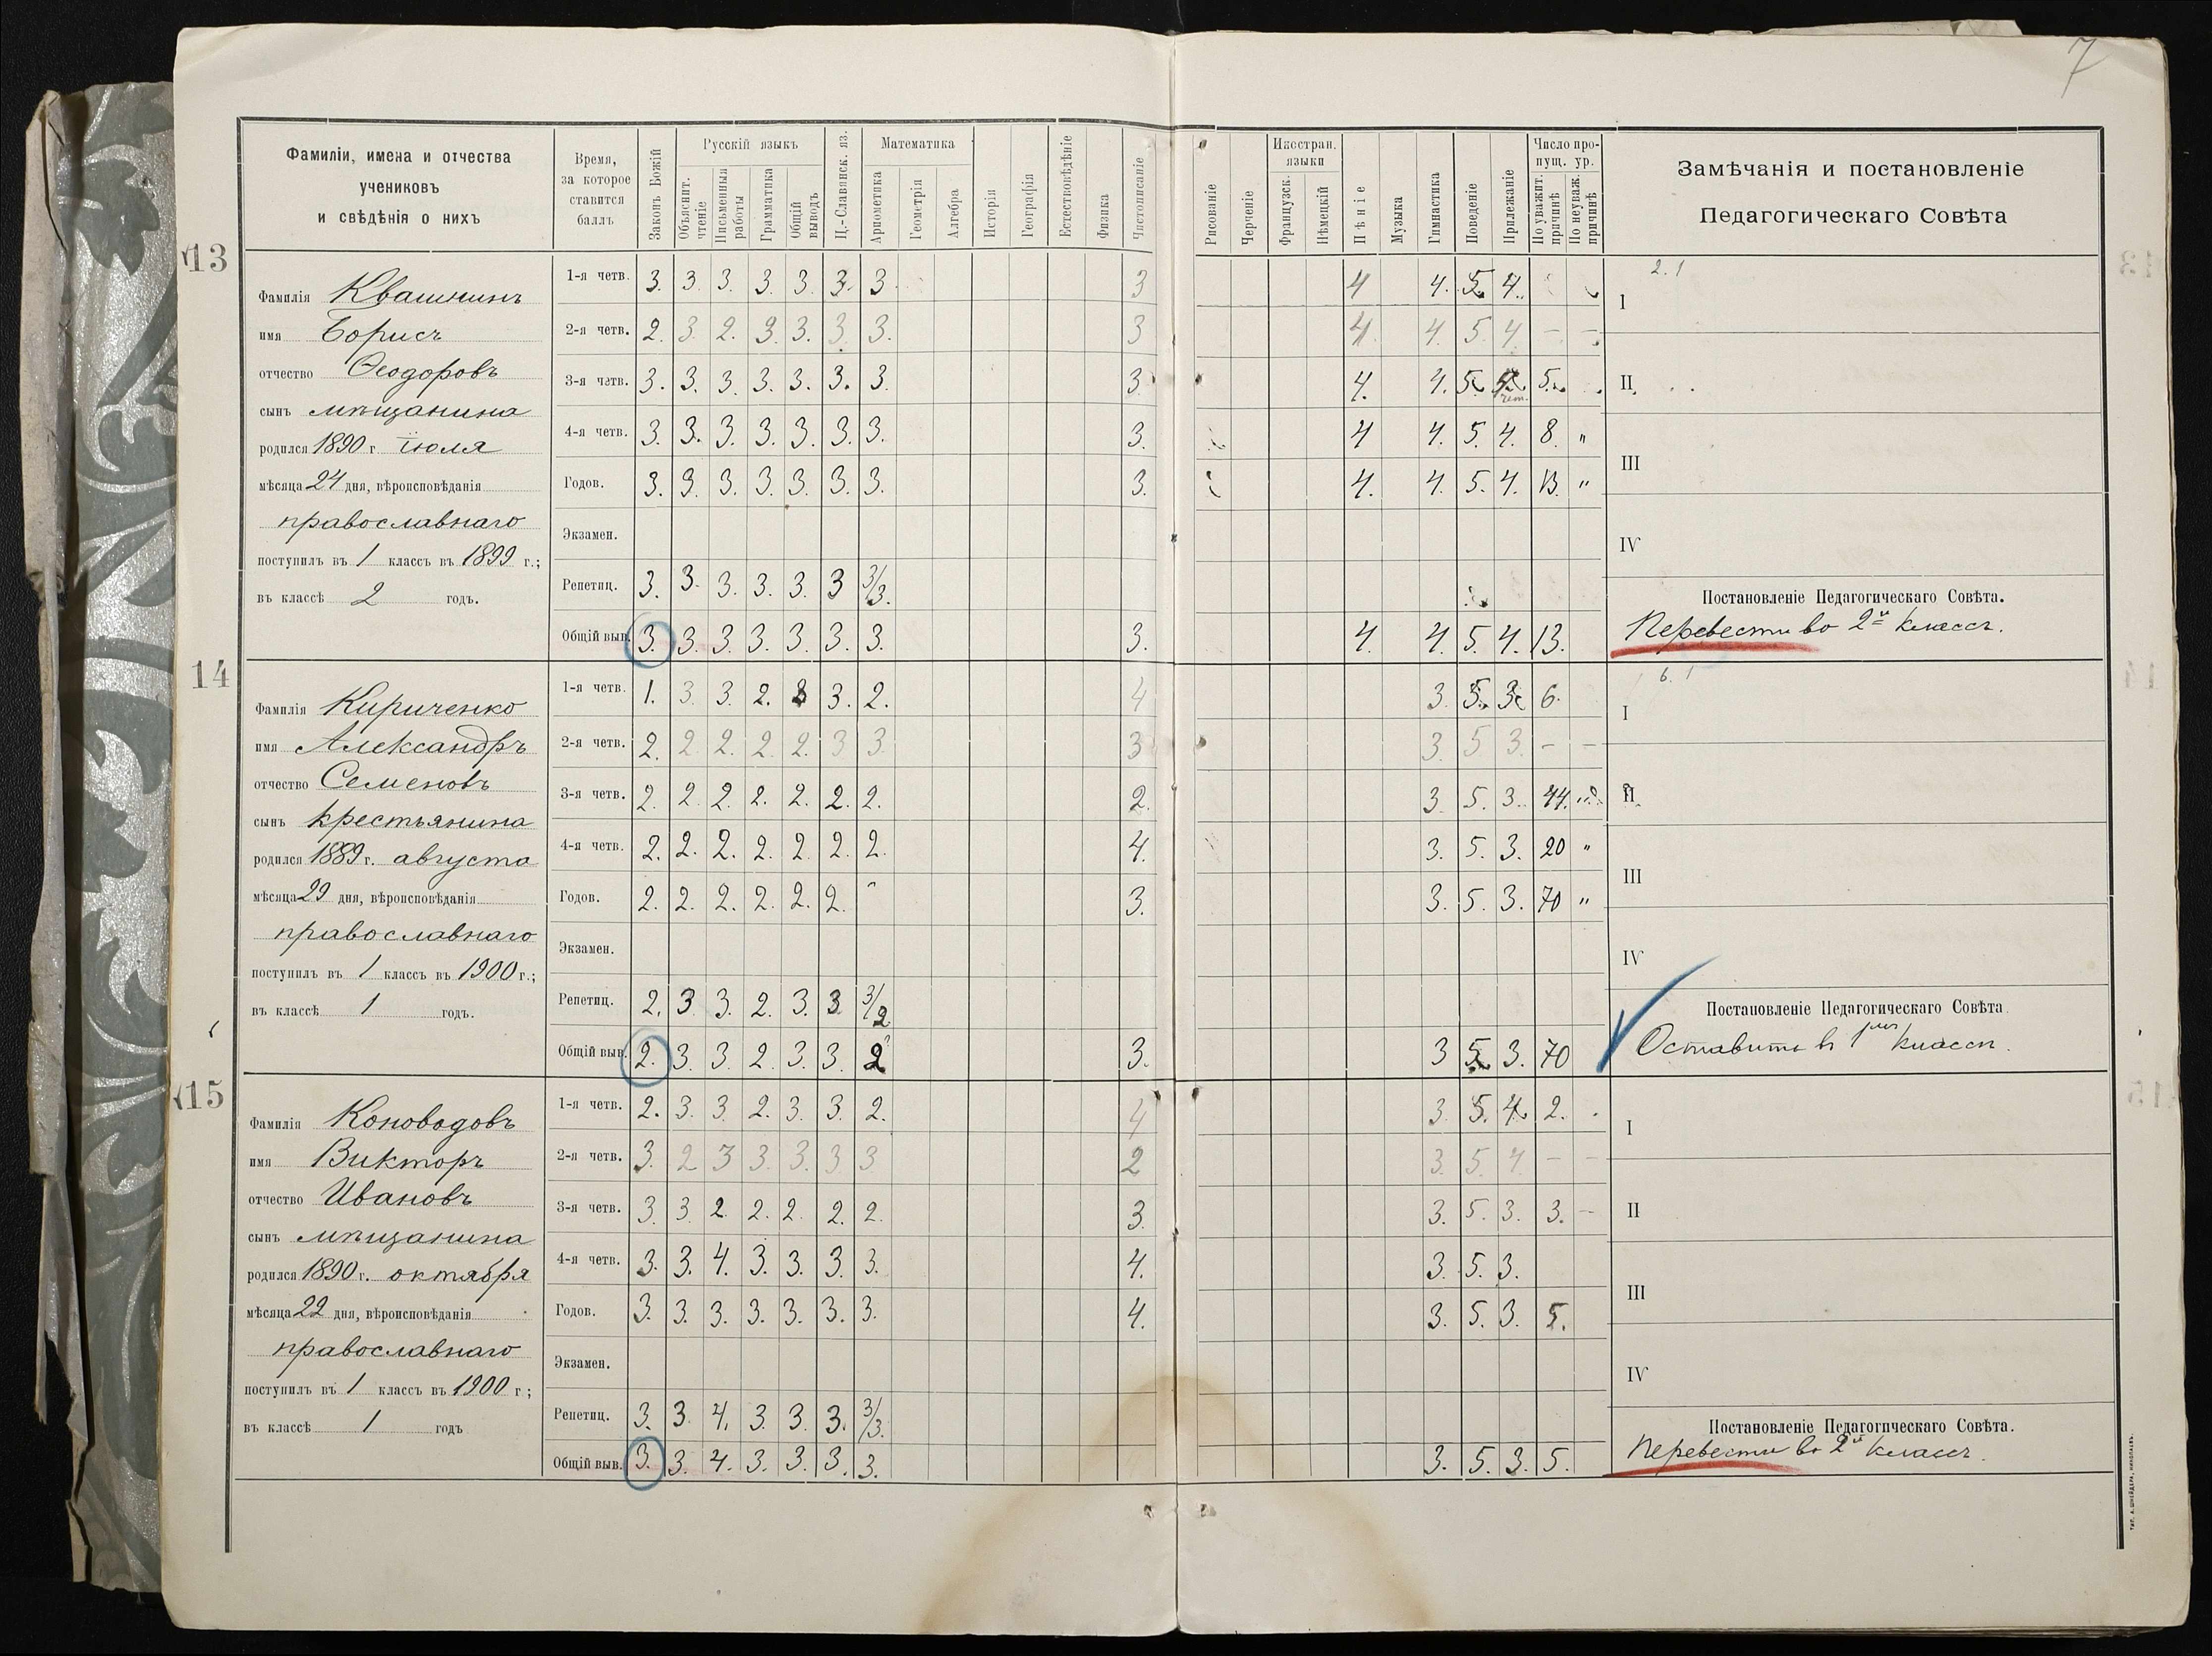 7
Фамиліи, имена и отчества
учениковъ
и свѣдѣнія о нихъ
Время,
за которое
ставится
баллъ
Законъ Божій
Русскій языкъ
Объяснит. чтеніе
Письменныя работы
Грамматика
Общій выводъ
Ц.-Славянск. яз.
Математика
Ариѳметика
Геометрія
Алгебра
Исторія
Географія
Естествовѣдѣніе
Физика
Чистописаніе
Рисованіе
Черченіе
Иностран. языки
Французск.
Нѣмецкій
Пѣніе
Музыка
Гимнастика
Поведеніе
Прилежаніе
Число пропущ. ур.
По уважит. причинѣ
По неуваж. причинѣ
Замѣчанія и постановленіе
Педагогическаго Совѣта
13
Фамилія Квашнинъ
имя Борисъ
отчество Ѳеодоровъ
сынъ мѣщанина
родился 1890 г. іюля
мѣсяца 24 дня, вѣроисповѣданія
православнаго
поступилъ въ 1 классъ въ 1899 г.;
въ классѣ 2 годъ.
1-я четв. 3. 3. 3. 3. 3. 3. 3. 3 4 4. 5. 4.
2-я четв. 2. 3. 2. 3. 3. 3. 3. 3 4. 4. 5. 4. — —
3-я четв. 3. 3. 3. 3. 3. 3. 3. 3. 4. 4. 5. 5.
4-я четв. 3. 3. 3. 3. 3. 3. 3. 3. 4 4. 5. 4. 8. "
Годов. 3. 3. 3. 3. 3. 3. 3. 3. 4. 4. 5. 4. 13. "
Экзамен.
Репетиц. 3. 3. 3. 3. 3. 3 3/3.
Общій выв. 3. 3. 3. 3. 3. 3. 3. 3. 4. 4. 5. 4. 13.
2. 1
I
II
III
IV
Постановленіе Педагогическаго Совѣта.
Перевести во 2й классъ.
14
Фамилія Кириченко
имя Александръ
отчество Семеновъ
сынъ крестьянина
родился 1889 г. августа
мѣсяца 29 дня, вѣроисповѣданія
православнаго
поступилъ въ 1 классъ въ 1900 г.;
въ классѣ 1 годъ.
1-я четв. 1. 3. 3. 2. 3. 2. 4 3. 5. 3. 6.
2-я четв. 2. 2. 2. 2. 2. 3 3. 3 3. 5 3. — —
3-я четв. 2. 2. 2. 2. 2. 2. 2. 2. 3. 5. 3. 44.
4-я четв. 2. 2. 2. 2. 2. 2. 2. 4. 3. 5. 3. 20 "
Годов. 2. 2. 2. 2. 2. 2. 3. 3. 5. 3. 70 "
Экзамен.
Репетиц. 2. 3 3. 2. 3. 3. 3/2
Общій выв. 2. 3. 3. 2 3. 3. 2 3. 3 5. 3. 70
6. 1
I
II
III
IV
Постановленіе Педагогическаго Совѣта.
Оставить въ 1мъ классѣ.
15
Фамилія Коноводовъ
имя Викторъ
отчество Ивановъ
сынъ мѣщанина
родился 1890 г. октября
мѣсяца 22 дня, вѣроисповѣданія
православнаго
поступилъ въ 1 классъ въ 1900 г;
въ классѣ 1 годъ
1-я четв. 2. 3. 3. 2. 3. 3. 2. 4 3. 5. 4. 2.
2-я четв. 3. 2 3 3. 3. 3 3 2 3. 5. 4. — —
3-я четв. 3. 3. 2. 2. 2. 2. 2. 3. 3. 5. 3. 3. —
4-я четв. 3. 3. 4. 3. 3. 3. 3. 4. 3. 5. 3.
Годов. 3. 3. 3. 3. 3. 3. 3. 4. 3. 5. 3. 5.
Экзамен.
Репетиц. 3. 3. 4. 3. 3. 3. 3/3.
Общій выв. 3. 3. 4. 3. 3. 3. 3. 3. 5. 3. 5.
I
II
III
IV
Постановленіе Педагогическаго Совѣта.
Перевести во 2й классъ.
Тип. А. Шнейдера, Николаевъ.